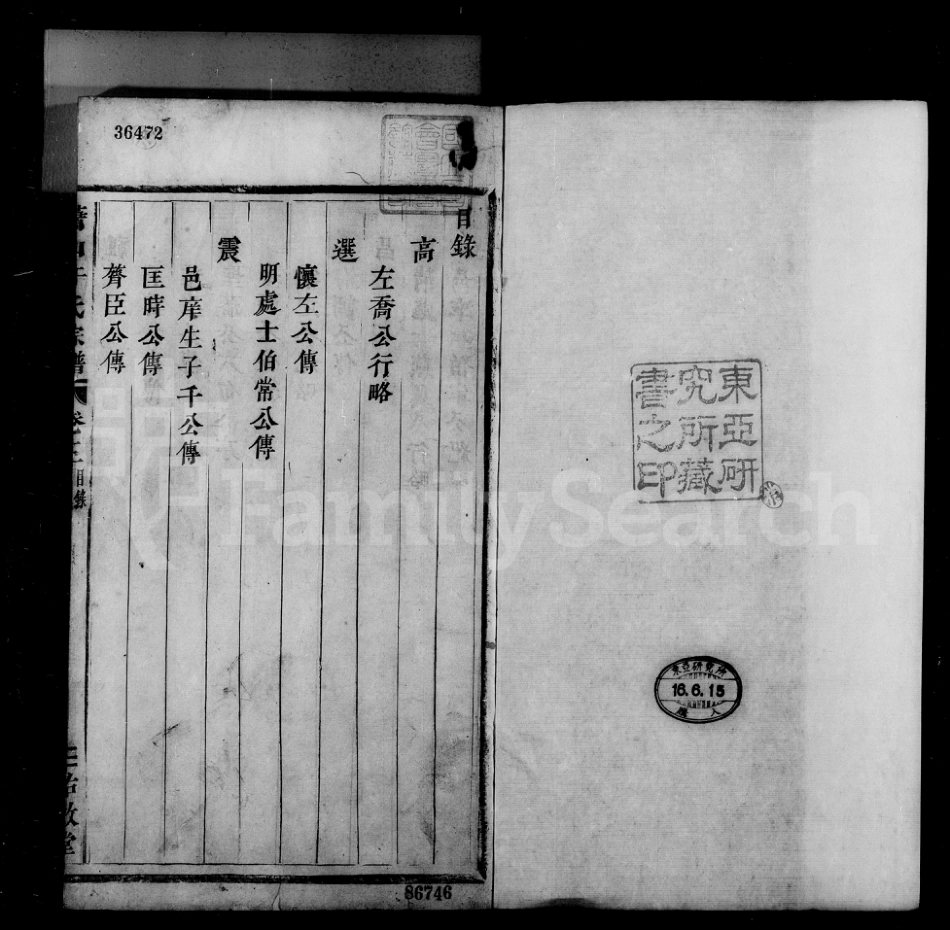 東亞研
究所藏
書之印
東亞研究所
16.6.15
購入
36472
目錄
高
左喬公行略
選
懷左公傳
明處士伯常公傳
震
邑庠生子千公傳
匡時公傳
齊臣公傳
氏宗譜
卷三
目錄
86746
FamilySearch